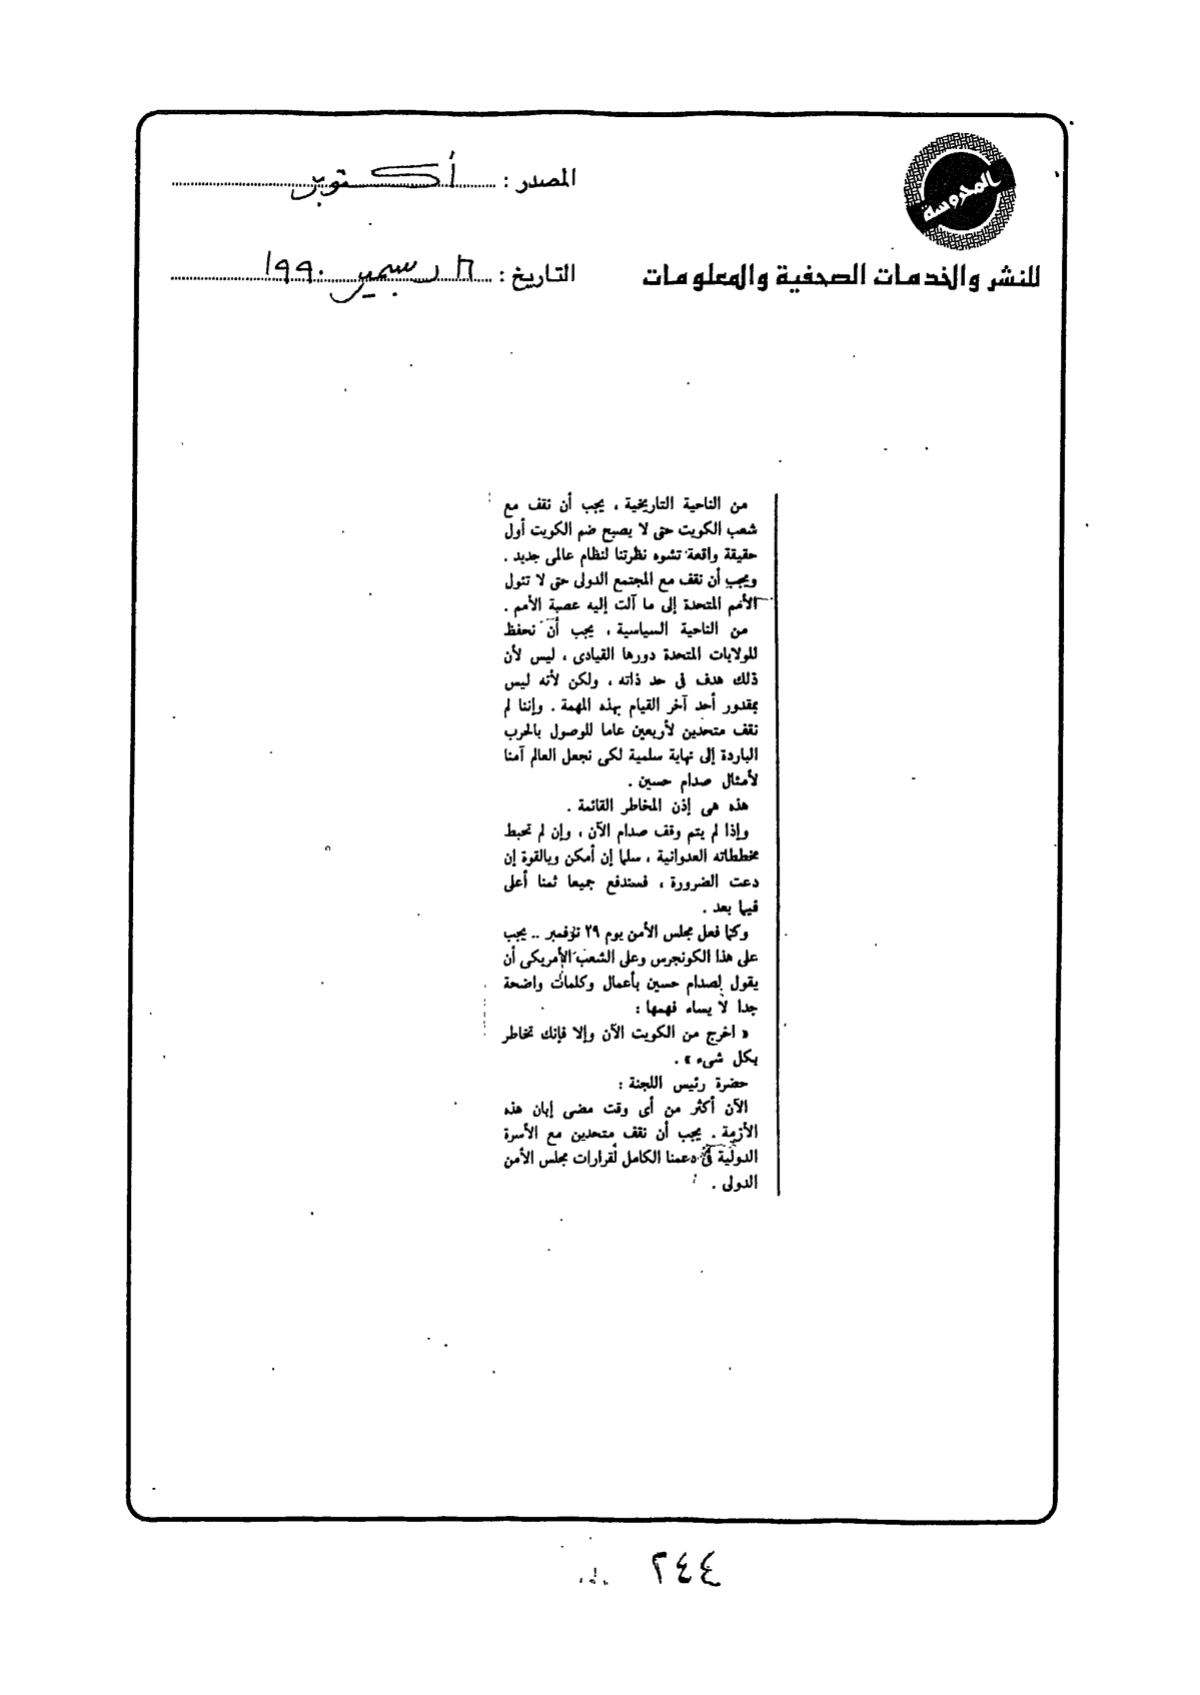 المصدر : أكتوبر
المحروسة
التاريخ : ١٦ ديسمبر ١٩٩٠
للنشر والخدمات الصحفية والمعلومات
من الناحية التاريخية ، يجب أن نقف مع
شعب الكويت حتى لا يصبح ضم الكويت أول
حقيقة واقعة تشوه نظرتنا لنظام عالمى جديد .
ويجب أن نقف مع المجتمع الدولى حتى لا تئول
الأمم المتحدة إلى ما آلت إليه عصبة الأمم .
من الناحية السياسية ، يجب أن نحفظ
للولايات المتحدة دورها القيادى ، ليس لأن
ذلك هدف فى حد ذاته ، ولكن لأنه ليس
بمقدور أحد آخر القيام بهذه المهمة . وإننا لم
نقف متحدين لأربعين عاما للوصول بالحرب
الباردة إلى نهاية سلمية لكى نجعل العالم آمنا
لأمثال صدام حسين .
هذه هى إذن المخاطر القائمة .
وإذا لم يتم وقف صدام الآن ، وإن لم تحبط
مخططاته العدوانية ، سلما إن أمكن وبالقوة إن
دعت الضرورة ، فسندفع جميعا ثمنا أعلى
فيما بعد .
وكما فعل مجلس الأمن يوم ٢٩ نوفمبر .. يجب
على هذا الكونجرس وعلى الشعب الأمريكى أن
يقول لصدام حسين بأعمال وكلمات واضحة
جدا لا يساء فهمها :
« اخرج من الكويت الآن وإلا فإنك تخاطر
بكل شىء » .
حضرة رئيس اللجنة :
الآن أكثر من أى وقت مضى إبان هذه
الأزمة . يجب أن نقف متحدين مع الأسرة
الدولية فى دعمنا الكامل لقرارات مجلس الأمن
الدولى .
٢٤٤